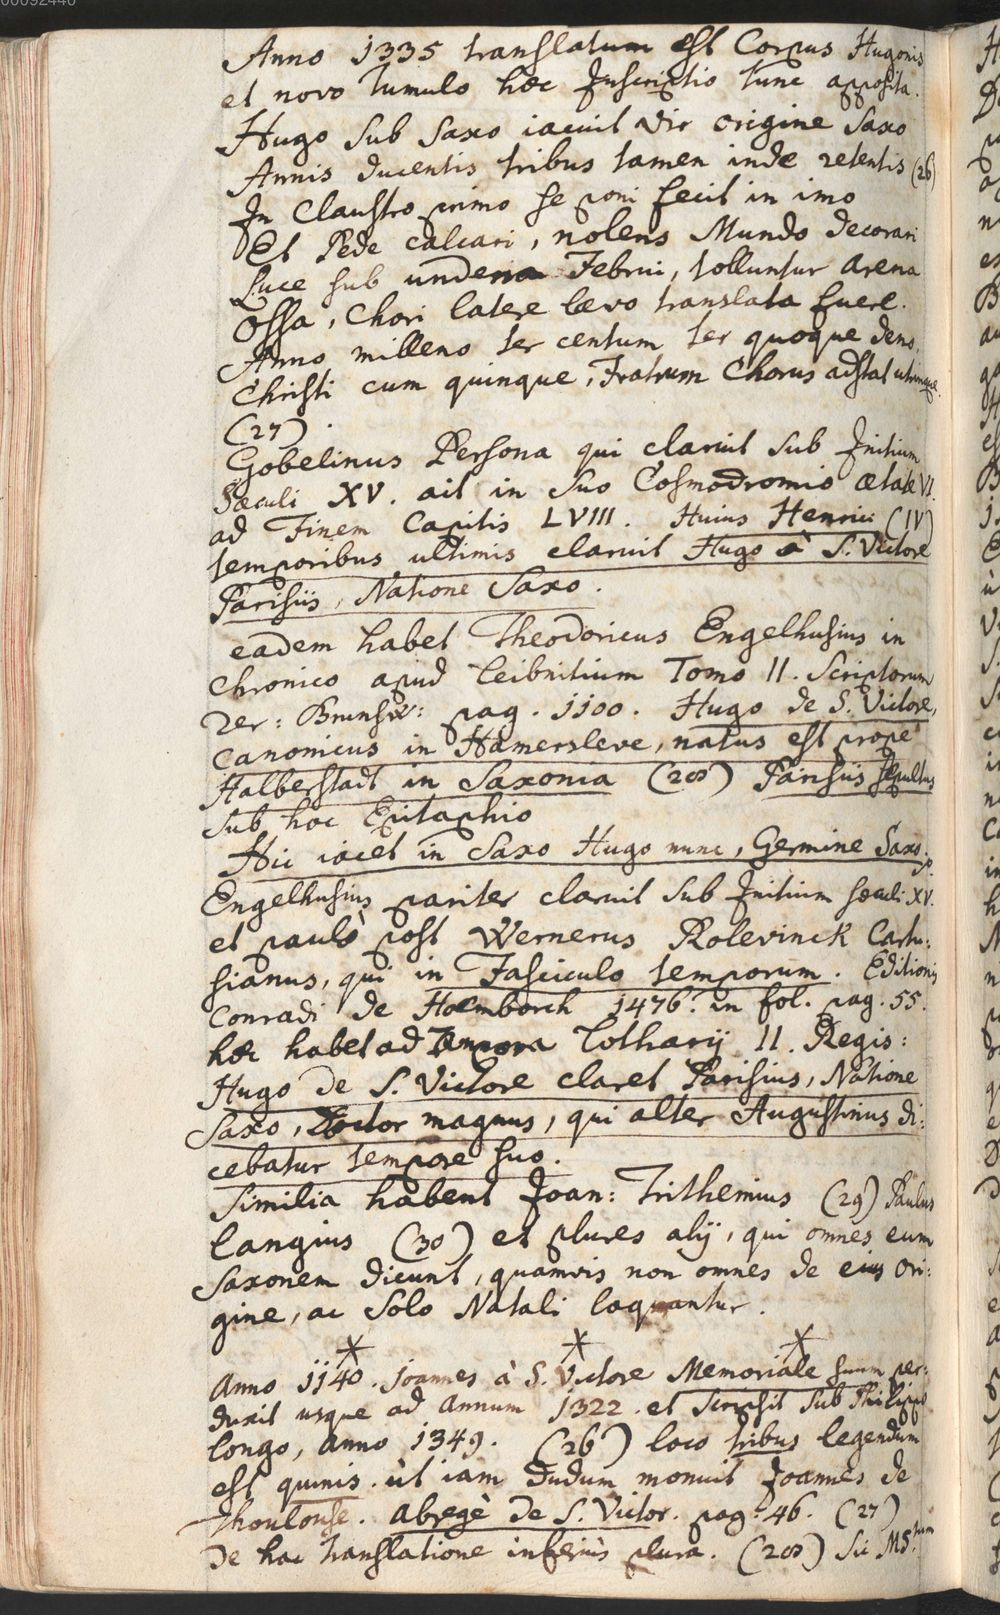 00092440
Anno 1335 translatum est Corpus Hugonis
et novo Tumulo hæc Inscriptio tunc apposita.
Hugo sub saxo iacuit vir origine saxo
Annis ducentis tribus tamen inde retentis (26)
In Claustro primo se poni fecit in imo
Et Pede calcari, nolens Mundo decorari
Luce sub undena Februi, tolluntur arena
Ossa, Chori latere lævo translata fuere.
Anno milleno ter centum ter quoque deno
Christi cum quinque, Fratrum Chorus adstat utrinque.
(27).
Gobelinus Persona qui claruit sub Initium
Sæculi XV. ait in suo Cosmodromio ætate VI.
ad Finem Capitis LVIII. Huius Henrici (IV)
temporibus ultimis claruit Hugo à S. Victore
Parisiis, Natione Saxo.
eadem habet Theodoricus Engelhusius in
Chronico apud Leibnitium Tomo II. Scriptorum
rer: Brunsw: pag. 1100. Hugo de S. Victore,
canonicus in Hamersleve, natus est prope
Halberstadt in Saxonia (28) Parisiis sepultus
sub hoc Epitaphio
Hic iacet in Saxo Hugo nunc, Germine Saxo.
Engelhusius pariter claruit sub Initium sæculi XV.
et paulò post Wernerus Rolevinck Cartu:
sianus, qui in Fasciculo temporum. Editionis
Conradi de Hoemborch 1476. in fol. pag. 55.
hæc habet ad Tempora Lotharij II. Regis:
Hugo de S. Victore claret Parisius, Natione
Saxo, Doctor magnus, qui alter Augustinus di:
cebatur tempore suo.
Similia habent Joan: Trithemius (29) Paulus
Langius (30) et plures alij, qui omnes eum
Saxonem dicunt, quamvis non omnes de eius Ori:
gine, ac Solo Natali loquantur.
* * *
Anno 1140. Joannes à S. Victore Memoriale suum per:
duxit usque ad Annum 1322. et scripsit sub Philippo
longo, anno 1349. (26) loco tribus legendum
est quinis. ùt iam dudum monuit Joannes de
Thoulouse. Abregè de S. Victor. pag. 46. (27)
de hac translatione inferiùs plura. (28) Sic MS.tum